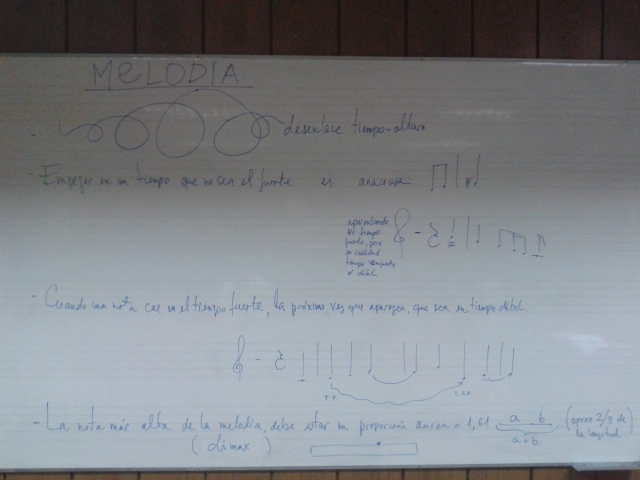 MELODIA
desenlace tiempo-altura
- Empezar en un tiempo que no sea el fuerte. ej. anacrusa
aparentando
un tiempo
fuerte, pero
en realidad
tiempo
o débil
- Cuando una nota cae en el tiempo fuerte, la próxima vez que aparezca, que sea en tiempo débil
- La nota más alta de la melodía, debe estar en proporción aurea = 1,61 a b (aprox 2/3 de
la longitud)
a+b
(climax)